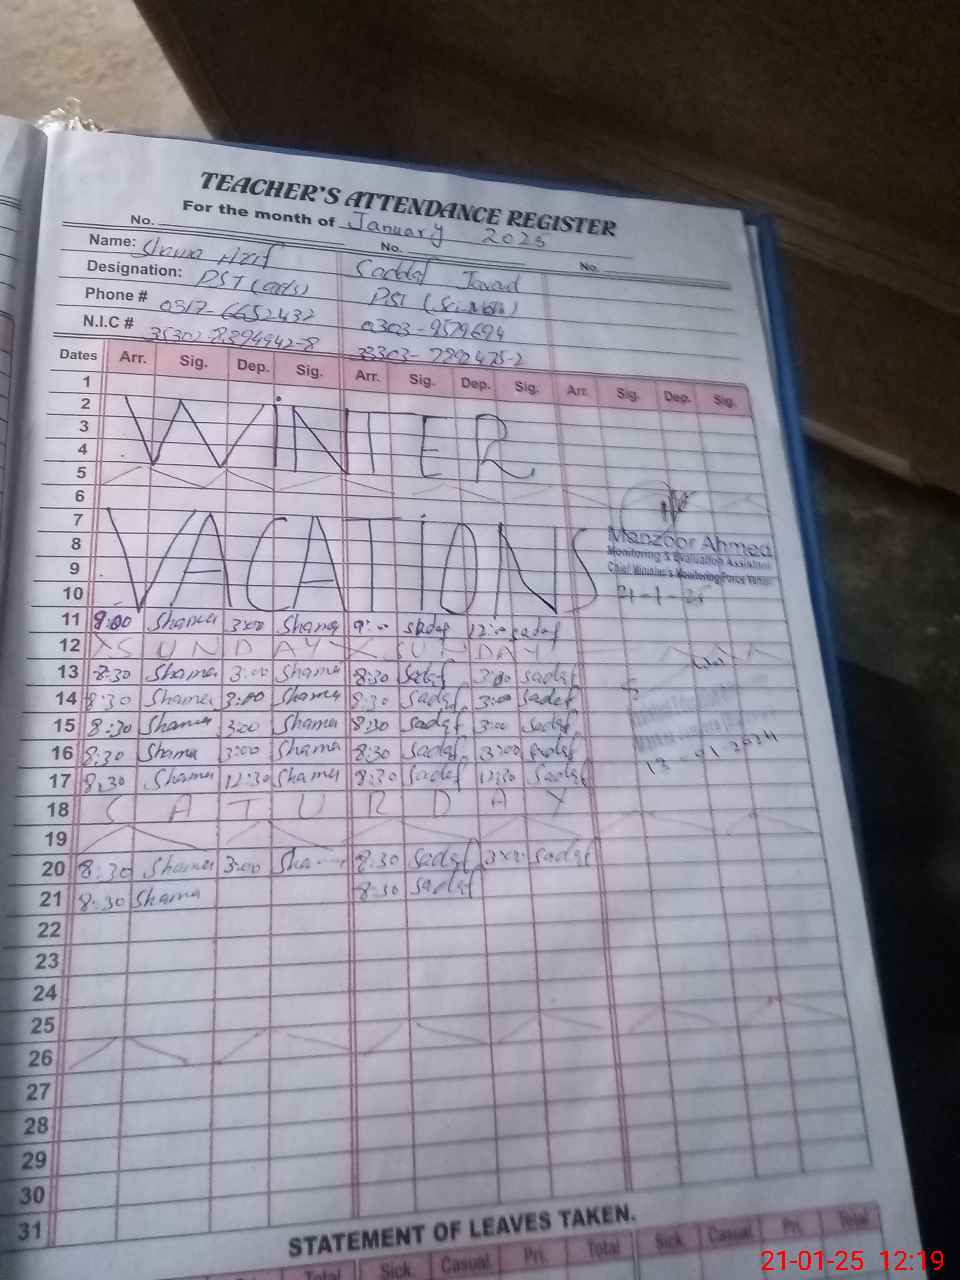 TEACHER'S ATTENDANCE REGISTER
For the month of January 2025
No. No. No.
Name: Sadaf Javad
Designation: PST (Arts) PST (Sci, Math)
Phone # 0317-6652432 0303-9579694
N.I.C #
Dates Arr. Sig. Dep. Sig. Arr. Sig. Dep. Sig. Arr. Sig. Dep. Sig.
1
2
3
4
WINTER
5
6
7
8
9
10
VACATIONS
Manzoor Ahmed
Monitoring & Evaluation Assistant
Chief Minister's Monitoring Force
21-1-25
11 9:00 Shama 3:00 Shama 9:00 Sadaf 12:00 Sadaf
12 SUNDAY SUNDAY
13 8:30 Shama 3:00 Shama 8:30 Sadaf 3:00 Sadaf
14 8:30 Shama 3:00 Shama 8:30 Sadaf 3:00 Sadaf
15 8:30 Shama 3:00 Shama 8:30 Sadaf 3:00 Sadaf
16 8:30 Shama 3:00 Shama 8:30 Sadaf 3:00 Sadaf
13-01-2024
17 8:30 Shama 12:30 Shama 8:30 Sadaf 12:30 Sadaf
18 SATURDAY
19
20 8:30 Shama 3:00 Shama 8:30 Sadaf 3:00 Sadaf
21 8:30 Shama 8:30 Sadaf
22
23
24
25
26
27
28
29
30
31
STATEMENT OF LEAVES TAKEN.
Total Sick Casual Pri. Total Sick Casual Pri. Total
21-01-25 12:19